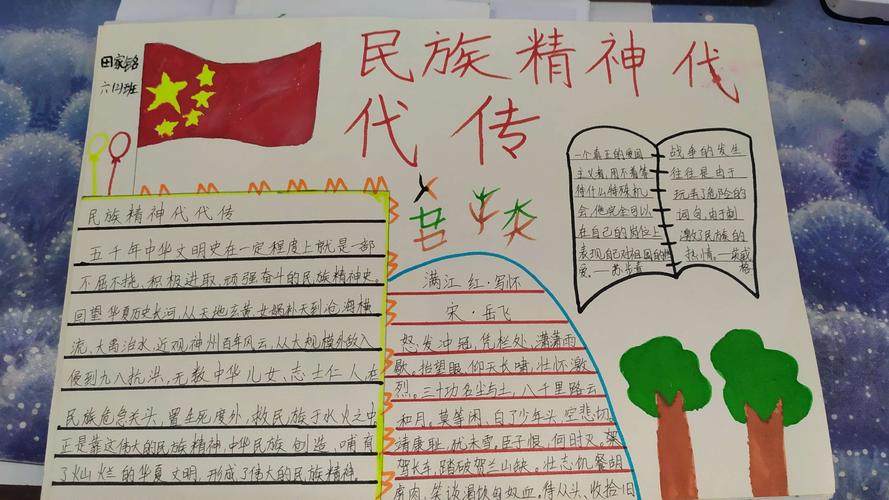 田家铭
六(2)班
民族精神代
代传
民族精神代代传
五千年中华文明史在一定程度上就是一部
不屈不挠、积极进取、顽强奋斗的民族精神史。
回望华夏历史长河,从天地玄黄、女娲补天到沧海横
流、大禹治水,近观神州百年风云,从大规模外敌入
侵到九八抗洪,无数中华儿女、志士仁人在
民族危急关头,置生死度外,救民族于水火之中
正是靠这伟大的民族精神,中华民族创造、哺育
了灿烂的华夏文明,形成了伟大的民族精神。
满江红·写怀
宋·岳飞
怒发冲冠,凭栏处、潇潇雨
歇。抬望眼,仰天长啸,壮怀激
烈。三十功名尘与土,八千里路云
和月。莫等闲、白了少年头,空悲切。
靖康耻,犹未雪,臣子恨,何时灭。驾
驾长车,踏破贺兰山缺。壮志饥餐胡
虏肉,笑谈渴饮匈奴血。待从头、收拾旧
一个真正的爱国
主义者,用不着等
待什么特殊机
会,他完全可以
在自己的岗位上
表现自己对祖国的热
爱。——苏步青
战争的发生
往往是由于
玩弄了危险的
词句,由于刺
激了民族的
热情。——英
格